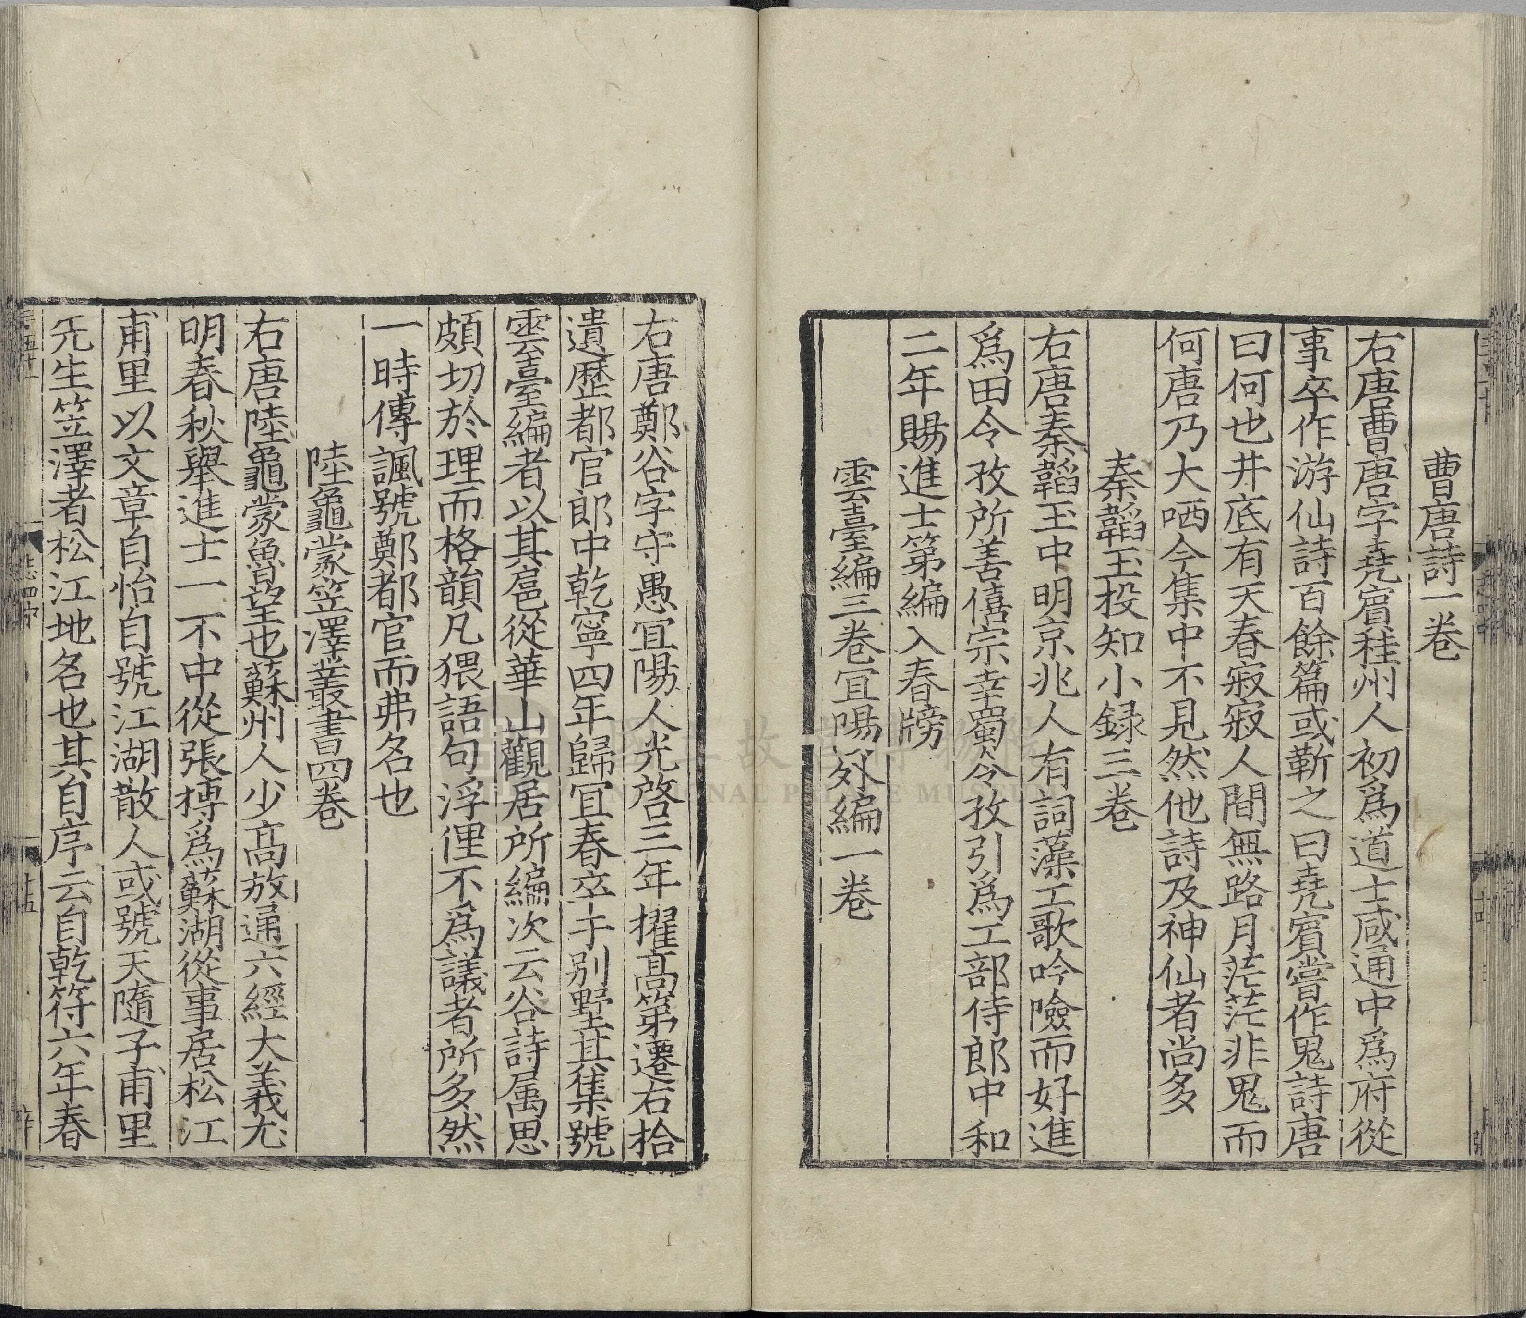 曹唐詩一卷
右唐曹唐字堯賓桂州人初爲道士咸通中爲府從
事卒作游仙詩百餘篇或靳之曰堯賓嘗作鬼詩唐
曰何也井底有天春寂寂人間無路月茫茫非鬼而
何唐乃大哂今集中不見然他詩及神仙者尚多
秦韜玉投知小録三卷
右唐秦韜玉中明京兆人有詞藻工歌吟險而好進
爲田令孜所善僖宗幸蜀令孜引爲工部侍郎中和
二年賜進士第編入春牓
雲臺編三卷宜陽外編一卷
右唐鄭谷字守愚宜陽人光啓三年擢高第遷右拾
遺歷都官郎中乾寧四年歸宜春卒于别墅其集號
雲臺編者以其扈從華山觀居所編次云谷詩属思
頗切於理而格韻凡猥語句浮俚不爲議者所多然
一時傳諷號鄭都官而弗名也
陸龜蒙笠澤叢書四卷
右唐陸龜蒙魯望也蘇州人少高放通六經大義尤
明春秋舉進士一不中從張摶爲蘇湖從事居松江
甫里以文章自怡自號江湖散人或號天隨子甫里
先生笠澤者松江地名也其自序云自乾符六年春
國立故宮博物院
NATIONAL PALACE MUSEUM